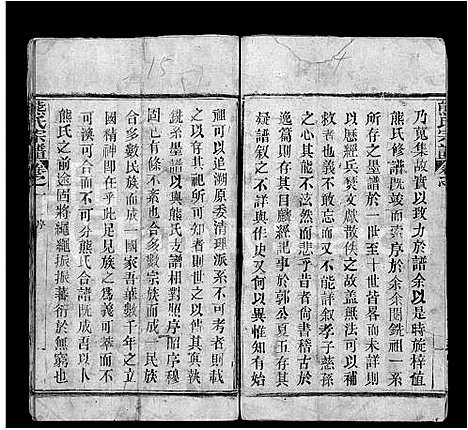 乃蒐集故實以致力於譜余以是時旋梓值
熊氏修譜既竣而索序於余余閱銑祖一系
所存之墨譜於一世至十世皆畧而未詳則
以歷經兵燹文獻散佚之故蓋無法可以稽
考也可無斷斷而又不能詳叙孝子慈孫
之心其能不泫然而悲乎昔者尚書稽古於
逸篇則存其目麟經記事於郭公夏五存其
疑譜叙之作與作史又何以異惟知有始
禰可以追溯原委清理派系不可考者則載
之以俟其後之可知者所載之以傳其真執
銑系墨譜以與熊氏支譜相對照序昭序穆
固已有條不紊也合多數宗族而成一民族
合多數民族而成一國家吾華數千年之立
國精神即在乎此足見族之爲義可大而不
可渙可合而不可分熊氏合譜既成吾以
熊氏之前途固將繩繩振振蕃衍於無窮也
熊氏宗譜
卷之一
序
15
4